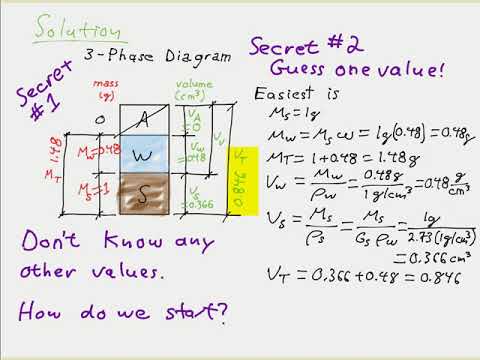 Solution
3-Phase Diagram
Secret
#1
mass
(g)
volume
(cm³)
0
A
V_A
=0
1.48
M_T
M_w=0.48
W
V_w
=0.48
V_v
M_s=1
S
V_s
=0.366
V_T
0.846
Don't know any
other values.
How do we start?
Secret #2
Guess one value!
Easiest is
M_s=1g
M_w = M_s ω = 1g(0.48) = 0.48g
M_T = 1+0.48 = 1.48g
V_w = M_w/ρ_w = 0.48g/1g/cm³ = 0.48 g/cm³
V_s = M_s/ρ_s = M_s/G_s ρ_w = 1g/2.73(1g/cm³)
= 0.366cm³
V_T = 0.366+0.48 = 0.846